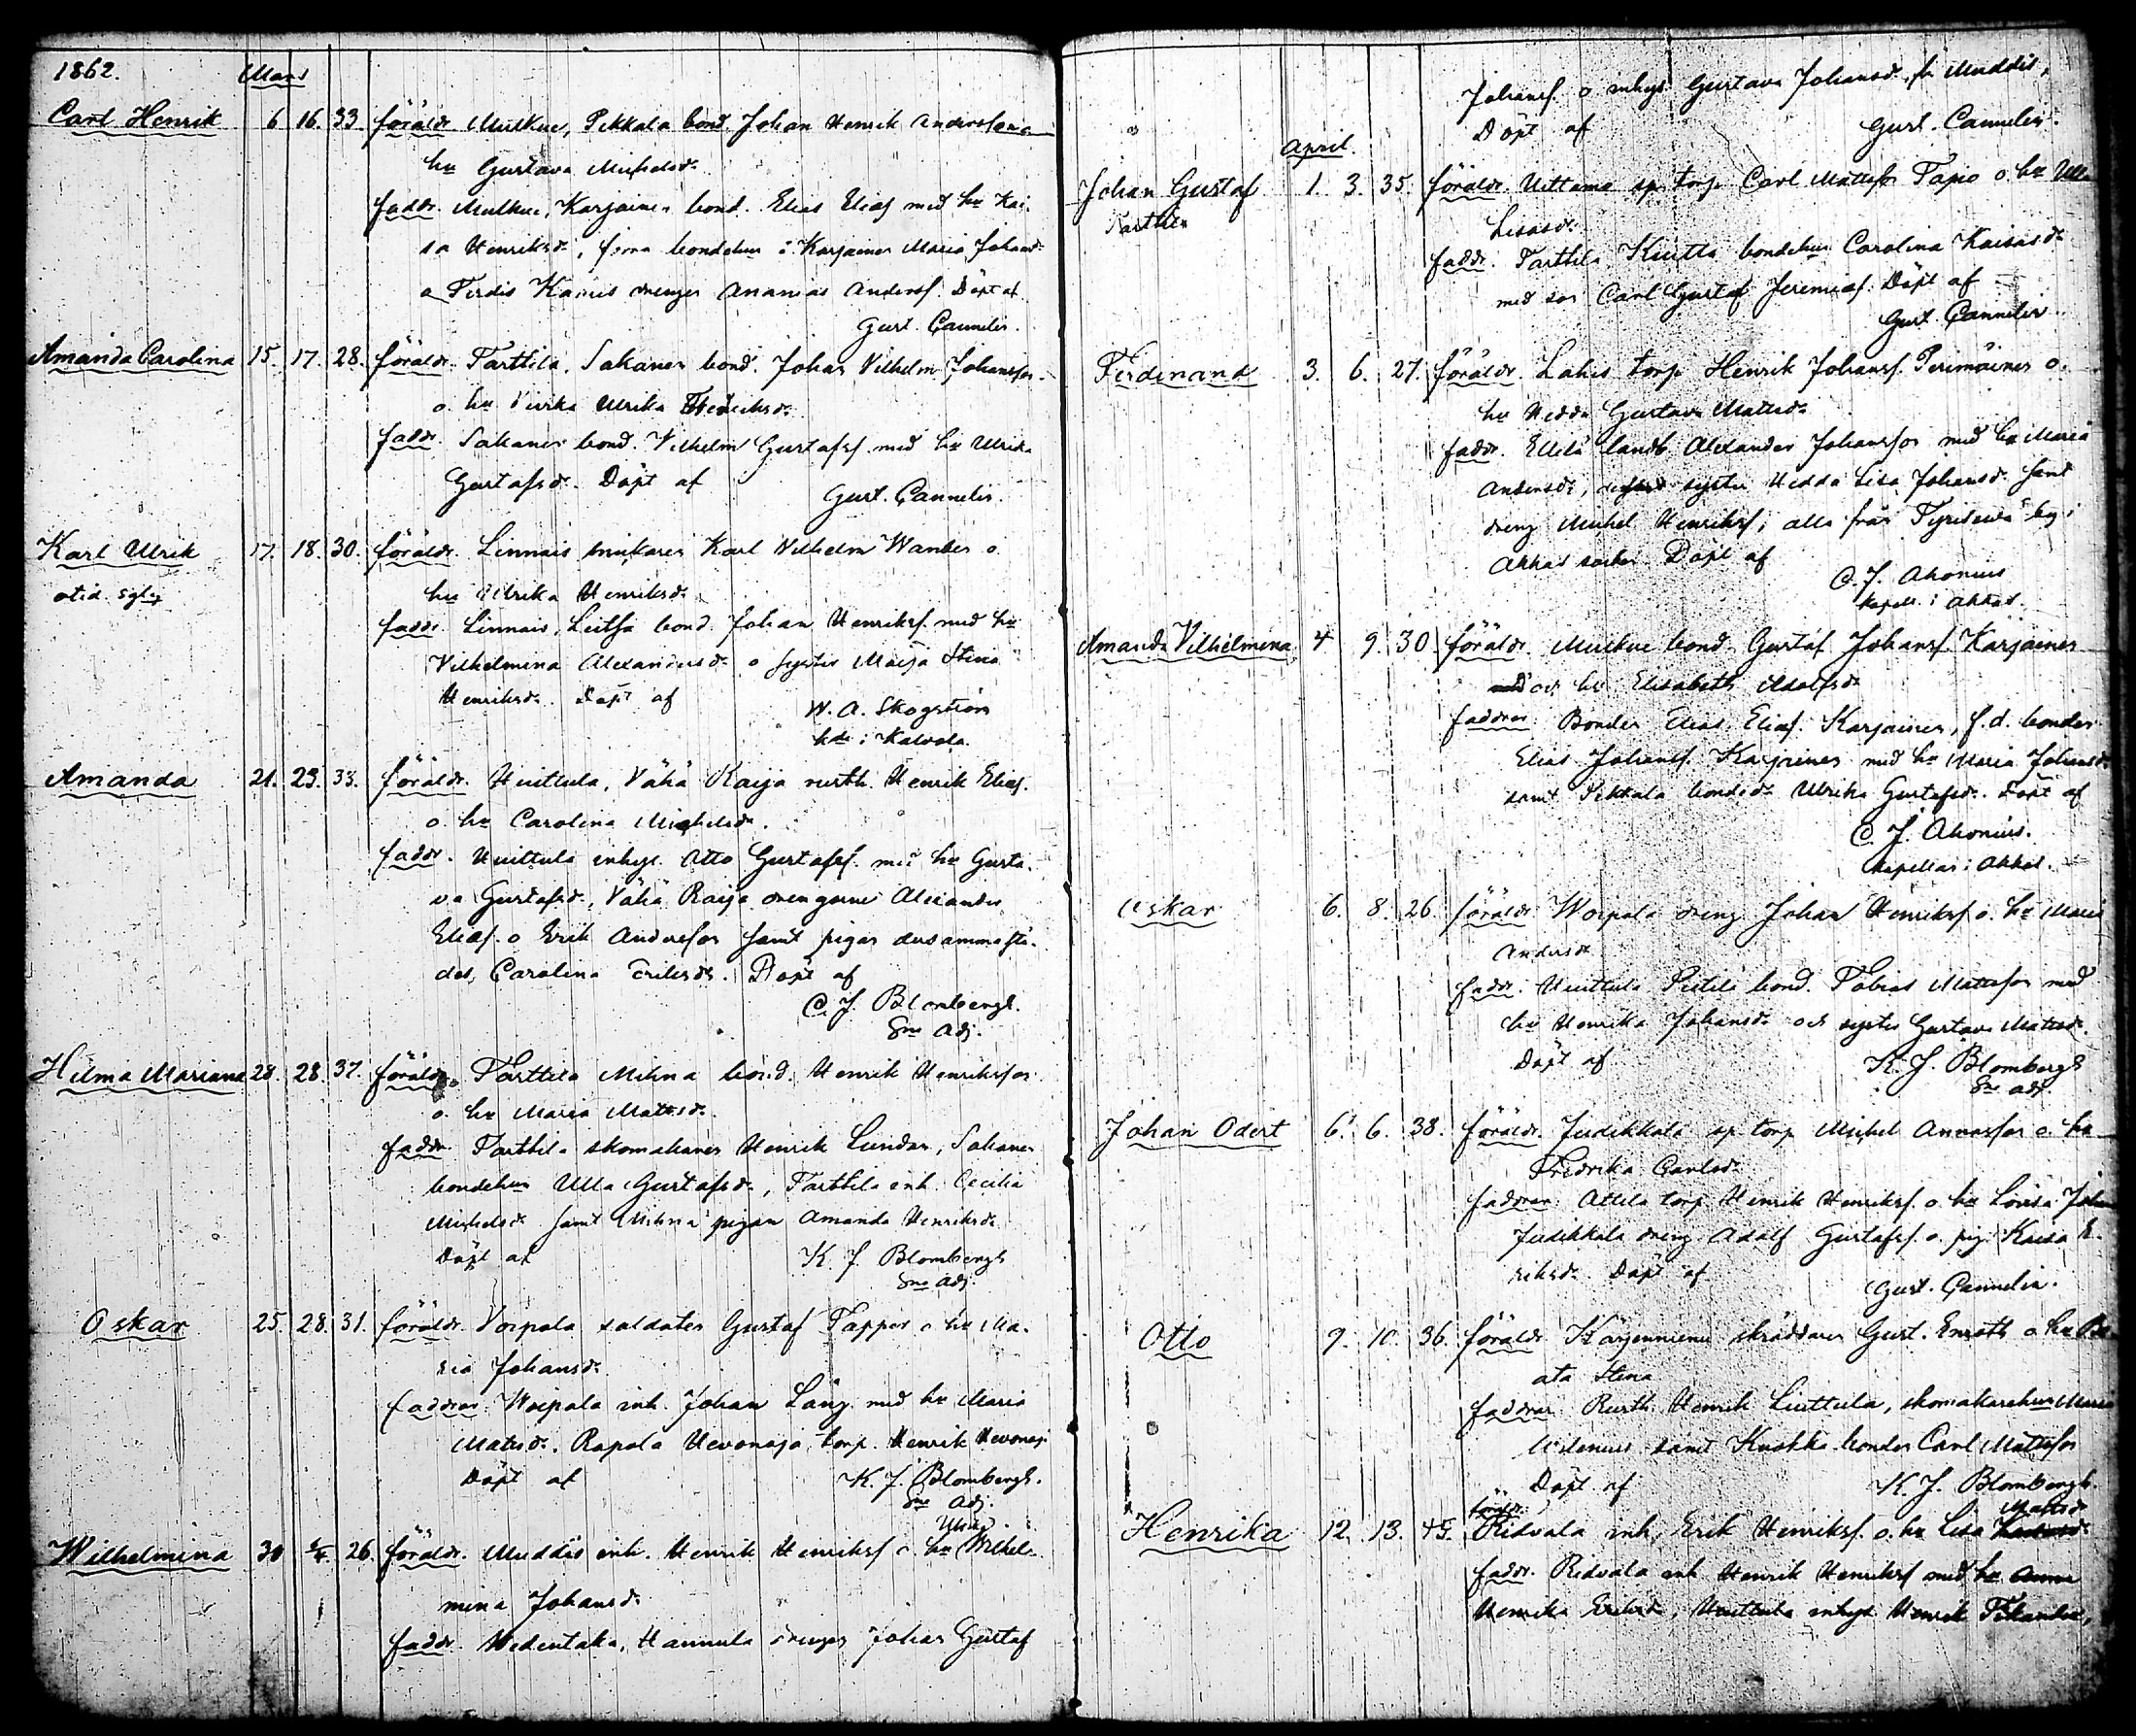 1862. Mars
Carl Henrik 6 16. 33. föräldr. Mulkue, Pekkala bond. Johan Henrik Andersson o
hu Gustava Michelsdr.
faddr. Mulkue, Karjainen bond. Elias Eliass. med hu Kai-
sa Henriksdr, förra bondehu i Karjainen Maria Johansdr
o drengen Ananias Anderss. Döpt af
Gust. Cannelin.
Amanda Carolina 15. 17. 28. föräldr. Tarttila, Sakanen bond. Johan Vilhelm Johansson
o. hu Ulrika Henriksdr.
faddr. Sakanen bond. Vilhelm Gustafss. med hu Ulrika
Gustafsdr. Döpt af Gust. Cannelin.
Karl Ulrik 17. 18. 30. föräldr. Linnais snickaren Karl Vilhelm Wander o.
hu Ulrika Henriksdr.
faddr. Linnais, bond. Johan Henrikss. med hu
Vilhelmina Alexandersdr. o syster Maija Stina
Henriksdr. Döpt af W. A. Skogström
i Kalvola.
Amanda 21. 23. 33. föräldr. Huittula, Vähä Raija rusth. Henrik Eliass.
o. hu Carolina Michelsdr.
faddr. Huittula inhys. Otto Gustafss. med hu Gusta-
va Gustafsdr, Vähä Raija drengarne Alexander
Eliass. o Erik Andersson samt pigan dersammastä-
des, Carolina Eriksdr. Döpt af
C. J. Blombergh.
Sne Adj.
Hilma Mariana 28. 28. 37. föräldr. Tarttila Mikna bond. Henrik Henriksson
o. hu Maria Matsdr.
faddr. Tarttila skomakaren Henrik Lundan, Sakanen
bondehun Ulla Gustafsdr, Tarttila inh. Cecilia
Michelsdr samt Mikna pigan Amanda Henriksdr.
Döpt af K. J. Blombergh
Sne Adj.
Oskar 25. 28. 31. föräldr. Voipala soldaten Gustaf Tapper o hu Ma-
ria Johansdr.
faddrar. Woipala inh. Johan Lång med hu Maria
Matsdr. Rapola Hevonoja torp. Henrik Hevonoj.
Döpt af K. J. Blombergh.
Sne Adj.
Wilhelmina 30 2/4. 26. föräldr. Muddis inh. Henrik Henrikss o. hu Wilhel-
mina Johansdr.
faddr. Wedentaka, Hannula drengen Johan Gustaf
Johanss. o inhys Gustava Johansdr. fr. Muddis,
Döpt af Gust. Cannelin.
April.
Johan Gustaf 1. 3. 35. föräldr. Uittamo sp. torp. Carl Mattsson Tapio o. hu Ulla
Tarttila Lisasdr.
faddr. Tarttila Kiutta bondehu Carolina Kaisasdr
med son Carl Gustaf Jeremiass. Döpt af
Gust. Cannelin.
Ferdinand 3. 6. 27. föräldr. Lahis torp. Henrik Johanss. Perimäinen o.
hu Hedda Gustava Matsdr.
faddr. landb. Alexander Johansson med hu Maria
Andersdr, syster Hedda Lisa Johansdr. samt
dreng Michel Henrikss, alla från by i
Akkas socken. Döpt af
C. J. Ahonius
kapell. i Akkas.
Amanda Vilhelmina 4 9. 30 föräldr. Mulkue bond. Gustaf Johanss. Karjainen
och hu Elisabeth Adolfsdr.
faddrar. Bonden Elias Eliass. Karjainen, f.d. bonden
Elias Johanss. Karjainen med hu Maria Johansdr.
samt Pekkala bondedr Ulrika Gustafsdr. Döpt af
C. J. Ahonius.
kapellan i Akkas.
Oskar 6. 8. 26. föräldr. Woipala dreng Johan Henrikss o. hu Maria
Andersdr
faddr. Huittula bond. Tobias Mattsson med
hu Henrika Johansdr. och syster Gustava Matsdr.
Döpt af K. J. Blombergh
Sne Adj.
Johan Odert 6. 6. 38. föräldr. Judikkala sp. torp Michel Annasson o. hu
Fredrika Carlsdr.
faddrar. Attila torp. Henrik Henrikss. o. hu Lovisa
Judikkala dreng Adolf Gustafss. o. pig. Kaisa E-
riksdr. Döpt af Gust. Cannelin.
Otto 9. 10. 36. föräldr. skräddaren Gust. Enroth o. hu Be-
ata Stina
faddrar. Rusth. Henrik Liuttula, skomakarehun Maria
samt Knokka bonden Carl Mattsson
Döpt af K. J. Blombergh.
Henrika 12. 13. 45. föräldr. Ridvala inh, Erik Henrikss. o. hu Lisa Matsdr
faddr. Ridvala inh Henrik Henrikss med hu Anna
Henrika Eriksdr, Huittula inhys Henrik